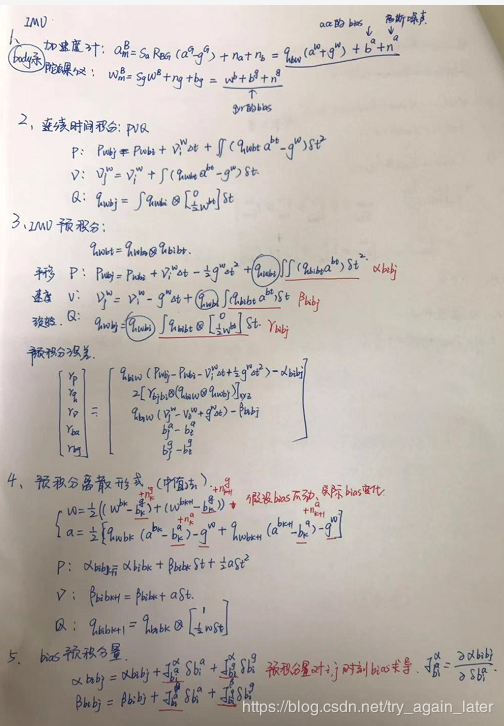 IMU
acc的bias 高斯噪声
1、加速度计: a_m^B = S_a R_BG (a^G - g^G) + n_a + n_b = q_bw (a^w + g^w) + b^a + n^a
body系
陀螺仪: w_m^B = S_g w^B + n_g + b_g = w^b + b^g + n^g
gyr的bias
2、连续时间积分: PVQ
P: P_wbj = P_wbi + v_i^w Δt + ∬ (q_wbt a^bt - g^w) δt²
V: v_j^w = v_i^w + ∫ (q_wbt a^bt - g^w) δt
Q: q_wbj = ∫ q_wbt ⊗ [0 ½w^bt] δt
3、IMU 预积分:
q_wbt = q_wbi ⊗ q_bibt
平移 P: P_wbj = P_wbi + v_i^w Δt - ½ g^w Δt² + q_wbi ∬ (q_bibt a^bt) δt² α_bibj
速度 V: v_j^w = v_i^w - g^w Δt + q_wbi ∫ (q_bibt a^bt) δt β_bibj
Q: q_wbj = q_wbi ∫ q_bibt ⊗ [0 ½w^bt] δt γ_bibj
预积分误差
[r_p r_q r_v r_ba r_bg] =
q_biw (P_wbj - P_wbi - v_i^w Δt + ½ g^w Δt²) - α_bibj
2[γ_bjbi ⊗ (q_biw ⊗ q_wbj)]_xyz
q_biw (v_j^w - v_i^w + g^w Δt) - β_bibj
b_j^a - b_i^a
b_j^g - b_i^g
4、预积分离散形式 (中值法)
+n_k^g +n_k+1^g
w = ½((w^bk - b_k^g) + (w^bk+1 - b_k^g)) 假设bias不动, 实际bias变化
+n_k^a +n_k+1^a
a = ½[q_wbk (a^bk - b_k^a) - g^w + q_wbk+1 (a^bk+1 - b_k^a) - g^w]
P: α_bibk+1 = α_bibk + β_bibk δt + ½ a δt²
V: β_bibk+1 = β_bibk + a δt
Q: q_bibk+1 = q_bibk ⊗ [1 ½wδt]
5、bias 预积分量
α_bibj = α_bibj + J_bi^α δb_i^a + J_bi^α δb_i^g 预积分量对i,j时刻bias求导. J_bi^α = ∂α_bibj / ∂δb_i^a
β_bibj = β_bibj + J_bi^β δb_i^a + J_bi^β δb_i^g
https://blog.csdn.net/try_again_later